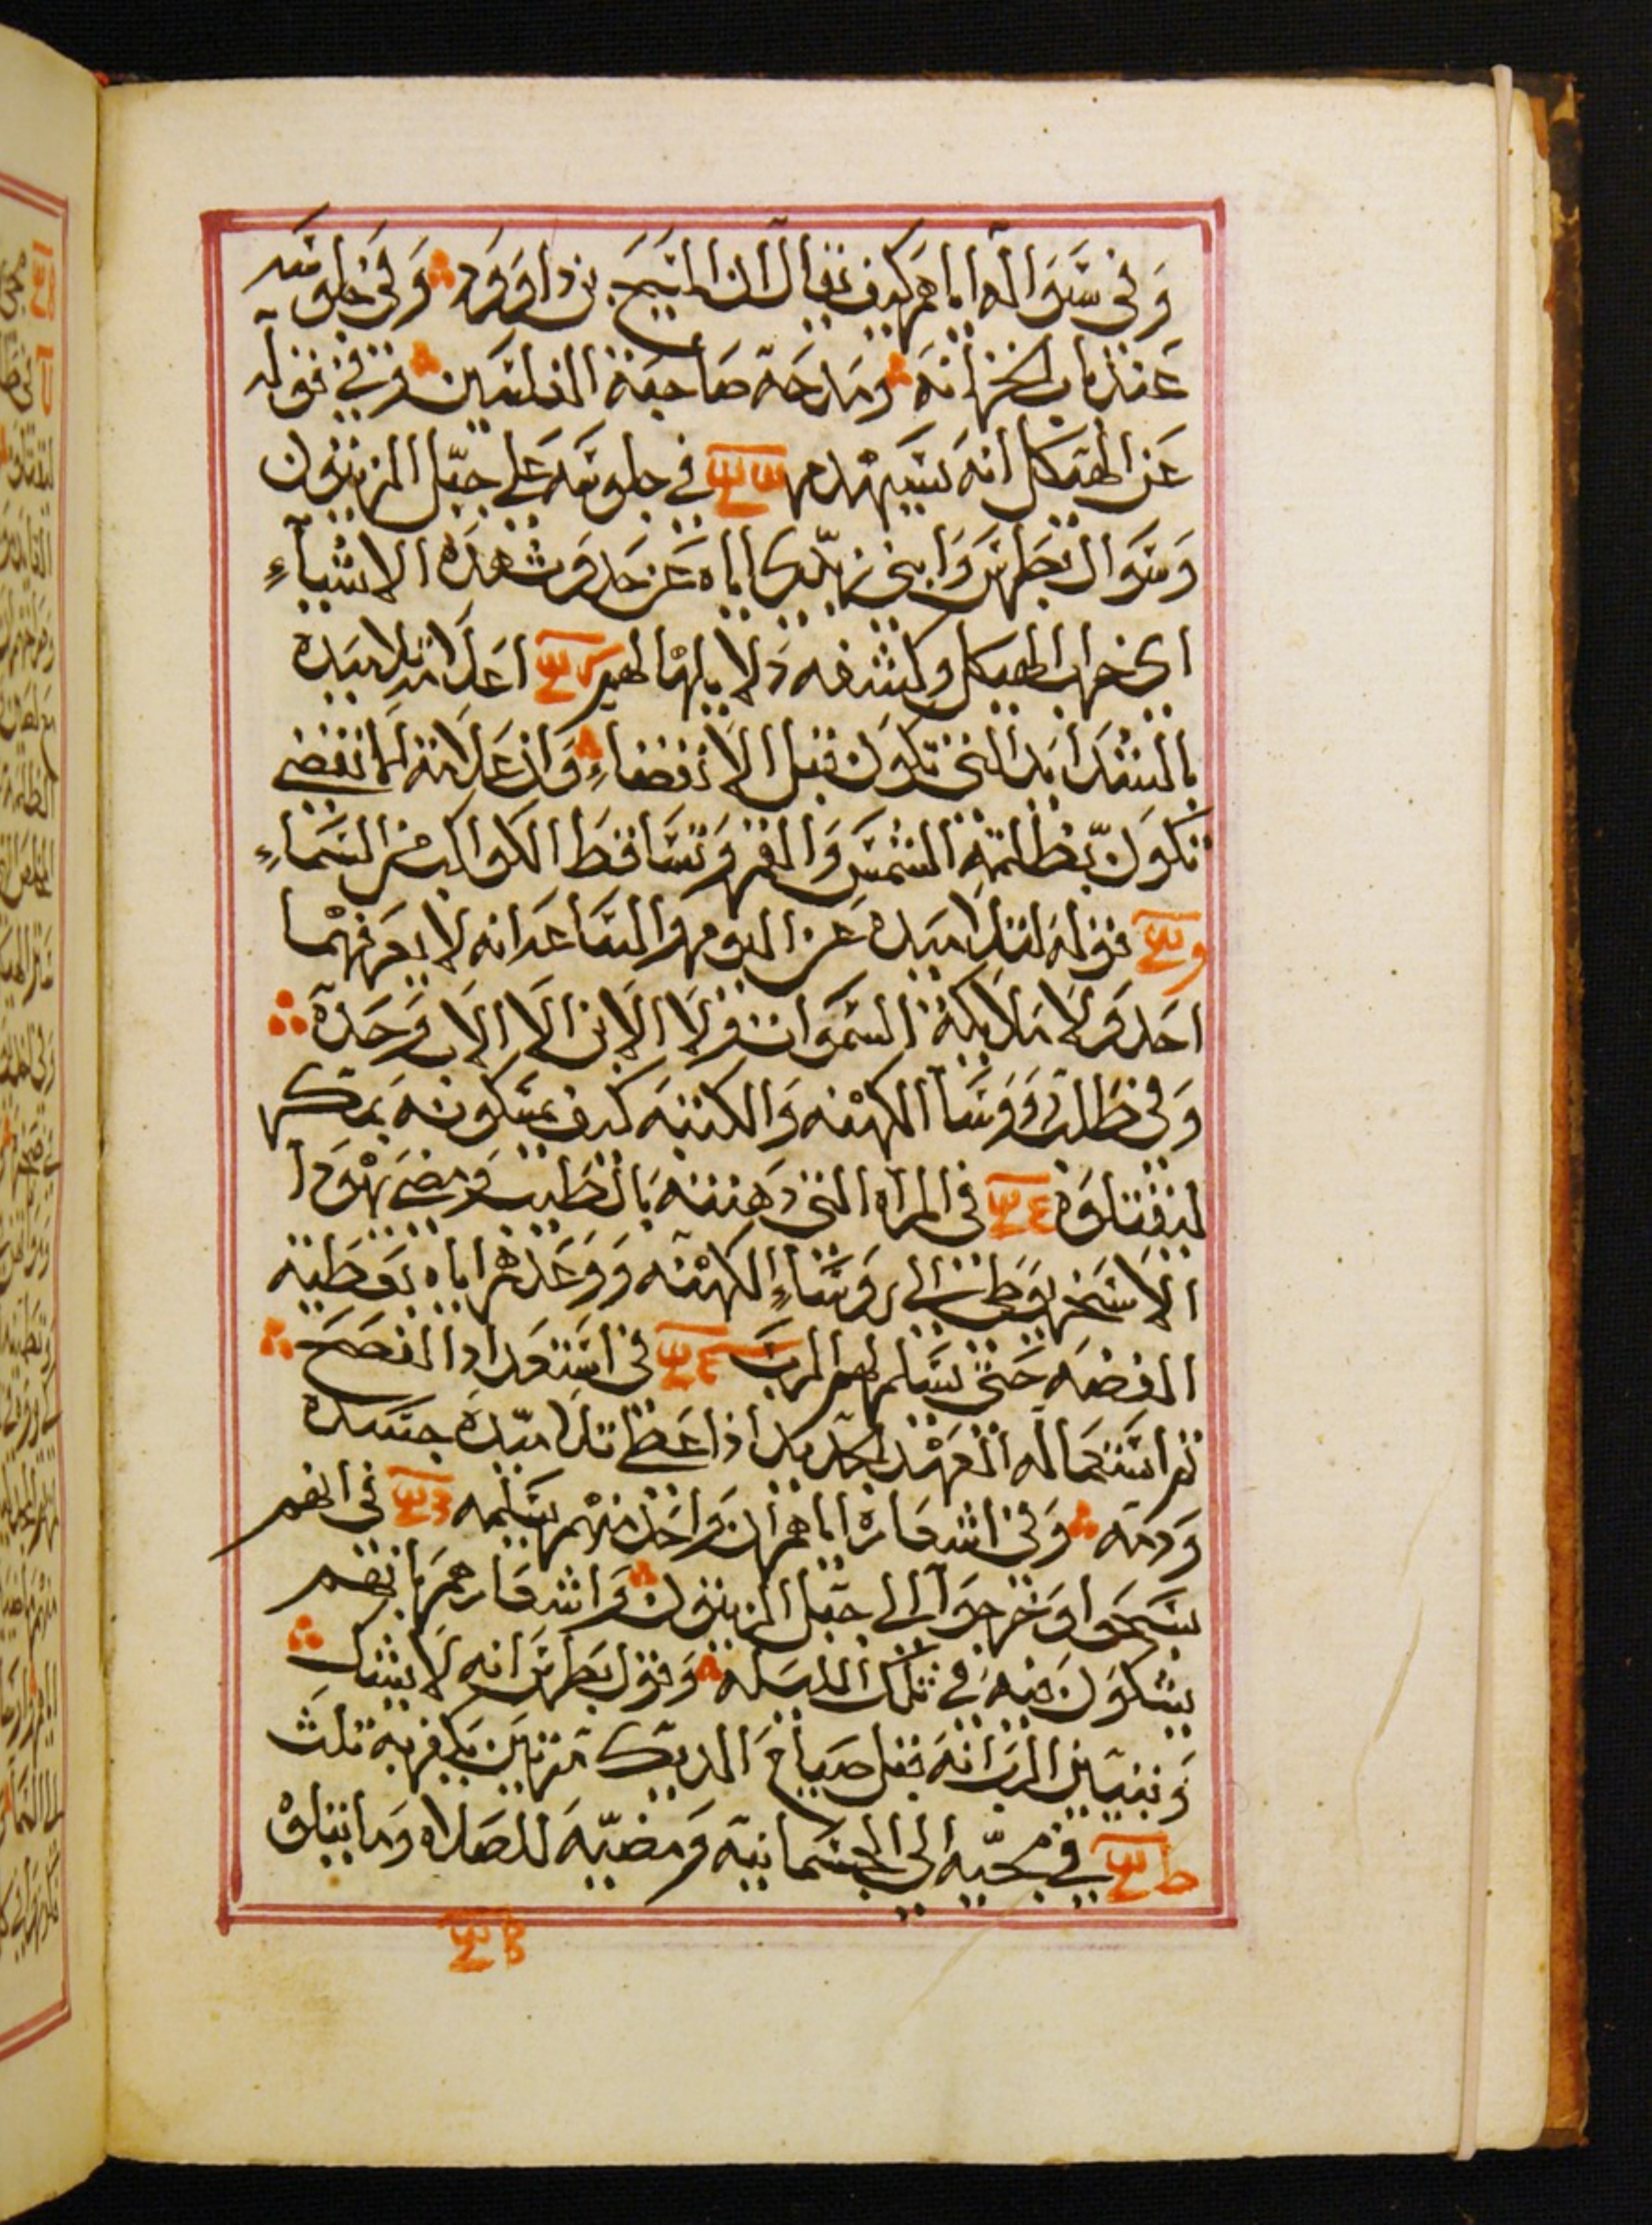 وَفي سَوَاله اياهم كيف يقال ان المسَيَح بن داوود وَفي جلوسَه
عَند باب الخزانه ومَدحَه صَاحبَة الفلسَين وفي قوله
عَن الهيكل انه سَيهدم في جلوسَه عَلي جبَل الزيتون
وَسَوال بطرسَ وَابني زبدي اياه عَن حَدوث هذه الاشياءِ
اي خراب الهيكل وكشفه ذلك لهم اعَلام تلاميَده
بالشدَايد التي تكوَن قبل الانقضاءِ وَان عَلامة الانقضي
تكوَن بظلمة الشمسَ وَالقمر وَتسَاقط الكواكب من السَماءِ
قوله لتلاميَده عَن اليوم وَالسَاعَه انه لا يعَرفهما
احَد وَلا ملايكة السَموَات وَلا الابن الا الاب وَحَده
وَفي طلب روَوسَا الكهنه وَالكتبه كيف يمسَكونه بمكر
ليقتلوَه في المراه التي دَهنته بالطيب وَمضي يهوَدا
الاسَخريوَطي الي روسَاءِ الكهنه وَوَعَدهم اياه بعَطية
الفضه حَتي يسَلم لهم الرب في اسَتعَداد الفصَح
ثم اسَتعماله العَهد الجديد اذ اعَطي تلاميَده جسَده
وَدمَه وَفي اشعاره اياهم ان وَاحَد منهم يسَلمه في انهم
سَبحَوا وَخرجوَا الي جبَل الزيتون وَاشعارهم بانهم
يشكوَن فيه في تلك الليَله وَقول بطرسَ انه لا يشك
وَتبيين الرب انه قبل صيَاح الديك مرتين يكفر به ثلث
في مجيّه الي الجسَمانية وَمضيّه للصَلاه وَما يتلوْ